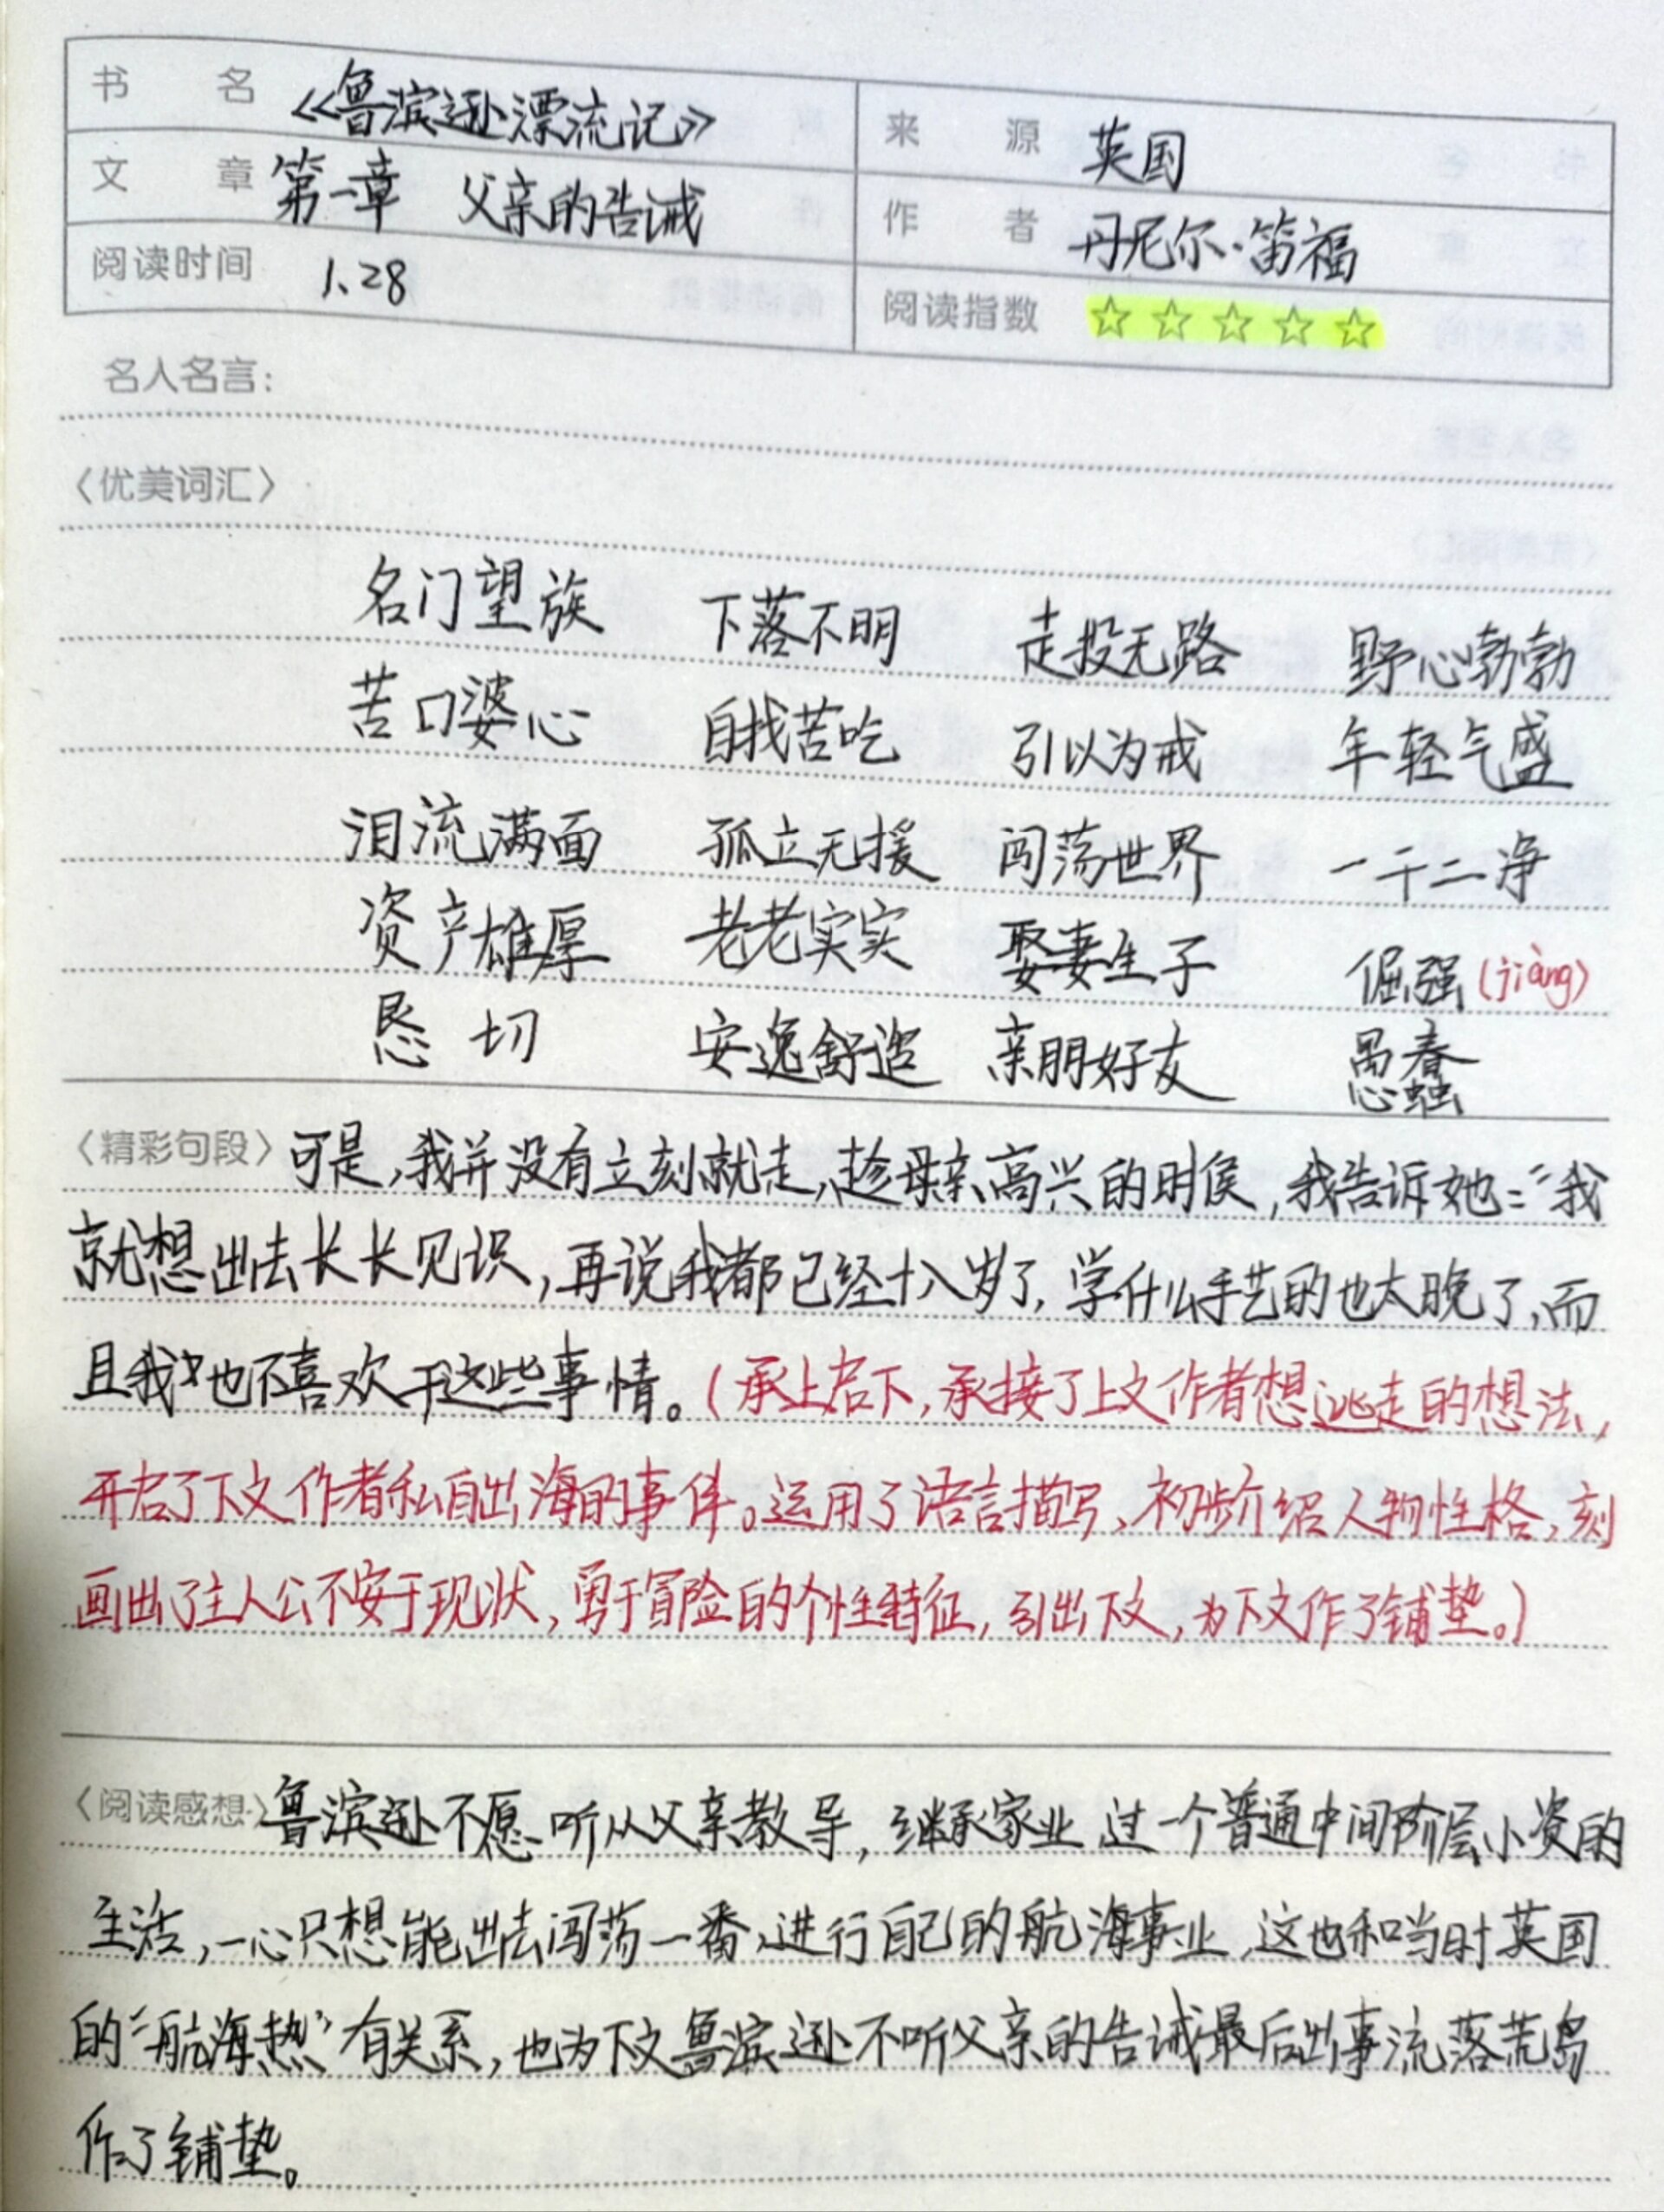 书 名 《鲁滨逊漂流记》 来 源 英国
文 章 第一章 父亲的告诫 作 者 丹尼尔·笛福
阅读时间 1、28 阅读指数 ☆☆☆☆☆
名人名言：
〈优美词汇〉
名门望族 下落不明 走投无路 野心勃勃
苦口婆心 自找苦吃 引以为戒 年轻气盛
泪流满面 孤立无援 闯荡世界 一干二净
资产雄厚 老老实实 娶妻生子 倔强(jiàng)
恳切 安逸舒适 亲朋好友 愚蠢
〈精彩句段〉可是，我并没有立刻就走，趁母亲高兴的时侯，我告诉她：“我
就想出去长长见识，再说我都已经十八岁了，学什么手艺的也太晚了，而
且我也不喜欢干这些事情。（承上启下，承接了上文作者想逃走的想法，
开启了下文作者私自出海的事件。运用了语言描写，初步介绍人物性格，刻
画出了主人公不安于现状，勇于冒险的个性特征，引出下文，为下文作了铺垫。）
〈阅读感想〉鲁滨逊不愿听从父亲教导，继承家业 过一个普通中间阶层小资的
生活，一心只想能出去闯荡一番，进行自己的航海事业，这也和当时英国
的“航海热”有关系，也为下文鲁滨逊不听父亲的告诫最后出事流落荒岛
作了铺垫。